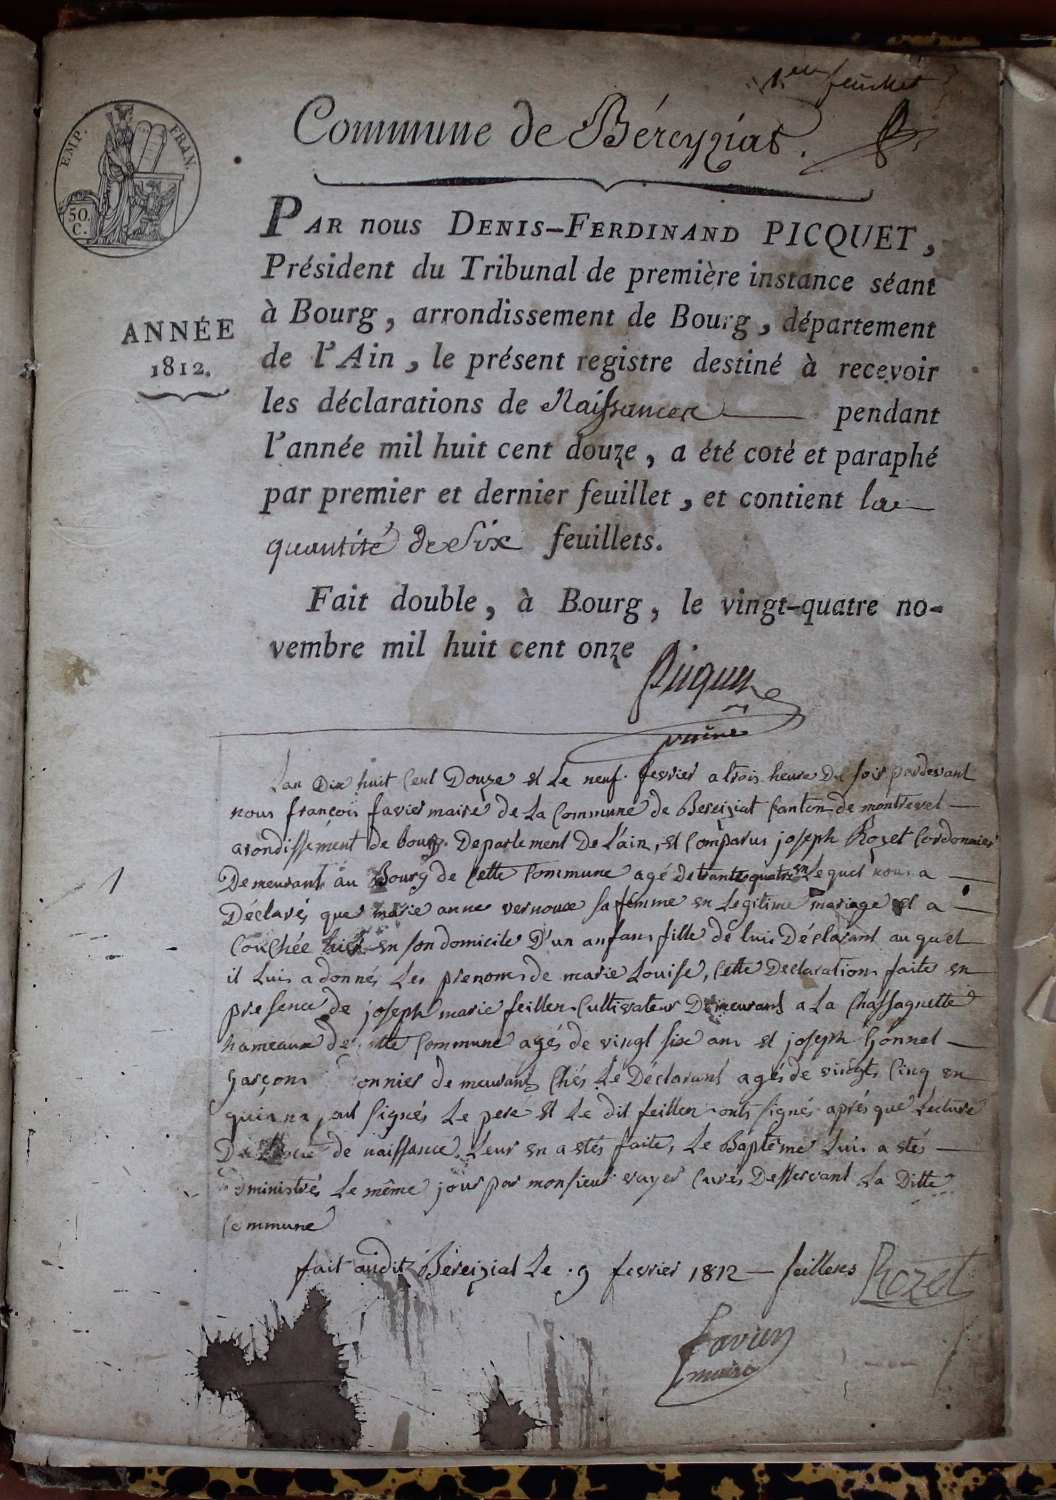 1er feuillet
Commune de Béreyziat.
EMP. FRAN.
50.
C.
PAR nous DENIS-FERDINAND PICQUET,
Président du Tribunal de première instance séant
à Bourg, arrondissement de Bourg, département
de l'Ain, le présent registre destiné à recevoir
les déclarations de Naissances pendant
l'année mil huit cent douze, a été coté et paraphé
par premier et dernier feuillet, et contient la
quantité de Six feuillets.
ANNÉE
1812.
Fait double, à Bourg, le vingt-quatre no-
vembre mil huit cent onze
Picquet
1
Lan Dix huit Cent Douze et Le neuf fevrier a trois heure Du soir pardevant
nous françois favier maire de La Commune de Bereiziat Canton de montrevel
arondissement de bourg Departement De Lain, est Comparus joseph Rozet Cordonnier
Demeurant au Bourg de Cette Commune agé de trante quatre en Lequel nous a
Déclarés que marie anne vernoux sa femme en Legitime mariage est a
Couchée hier en son domicile D'un anfans fille de Luis Déclarant auquel
il Luis a donnés Les prenoms de marie Louise, Cette Declaration faite en
presence de joseph marie feillen Cultivateur Demeurant a La Chassagnette
hameaux de Commune agés de vingt six ans et joseph Gonnel
Garçon demeurant Chés Le Déclarant agés de vingts Cinq en
qui na, out signés Le pere et Le dit feillen onts signés aprés que Lecture
de naissance Leur en a etés faite, Le Baptême Luis a etés
administrés Le même jour par monsieur vuyer Curés Desservant La Ditte
Commune
fait audit Béreizial Le 9 fevrier 1812 feillens Rozet
favier
maire